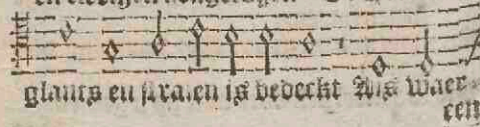 glants en stralen is bedeckt Als waer
een